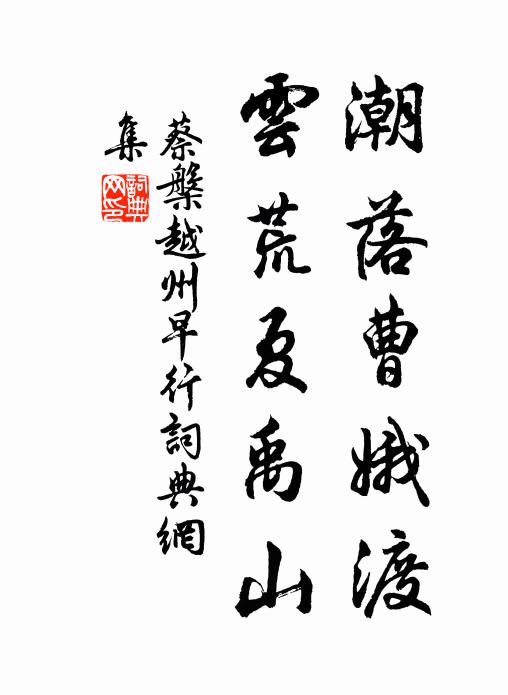 潮落曹娥渡
雲荒夏禹山
蔡槃越州早行詞典網
集
詞典
网印